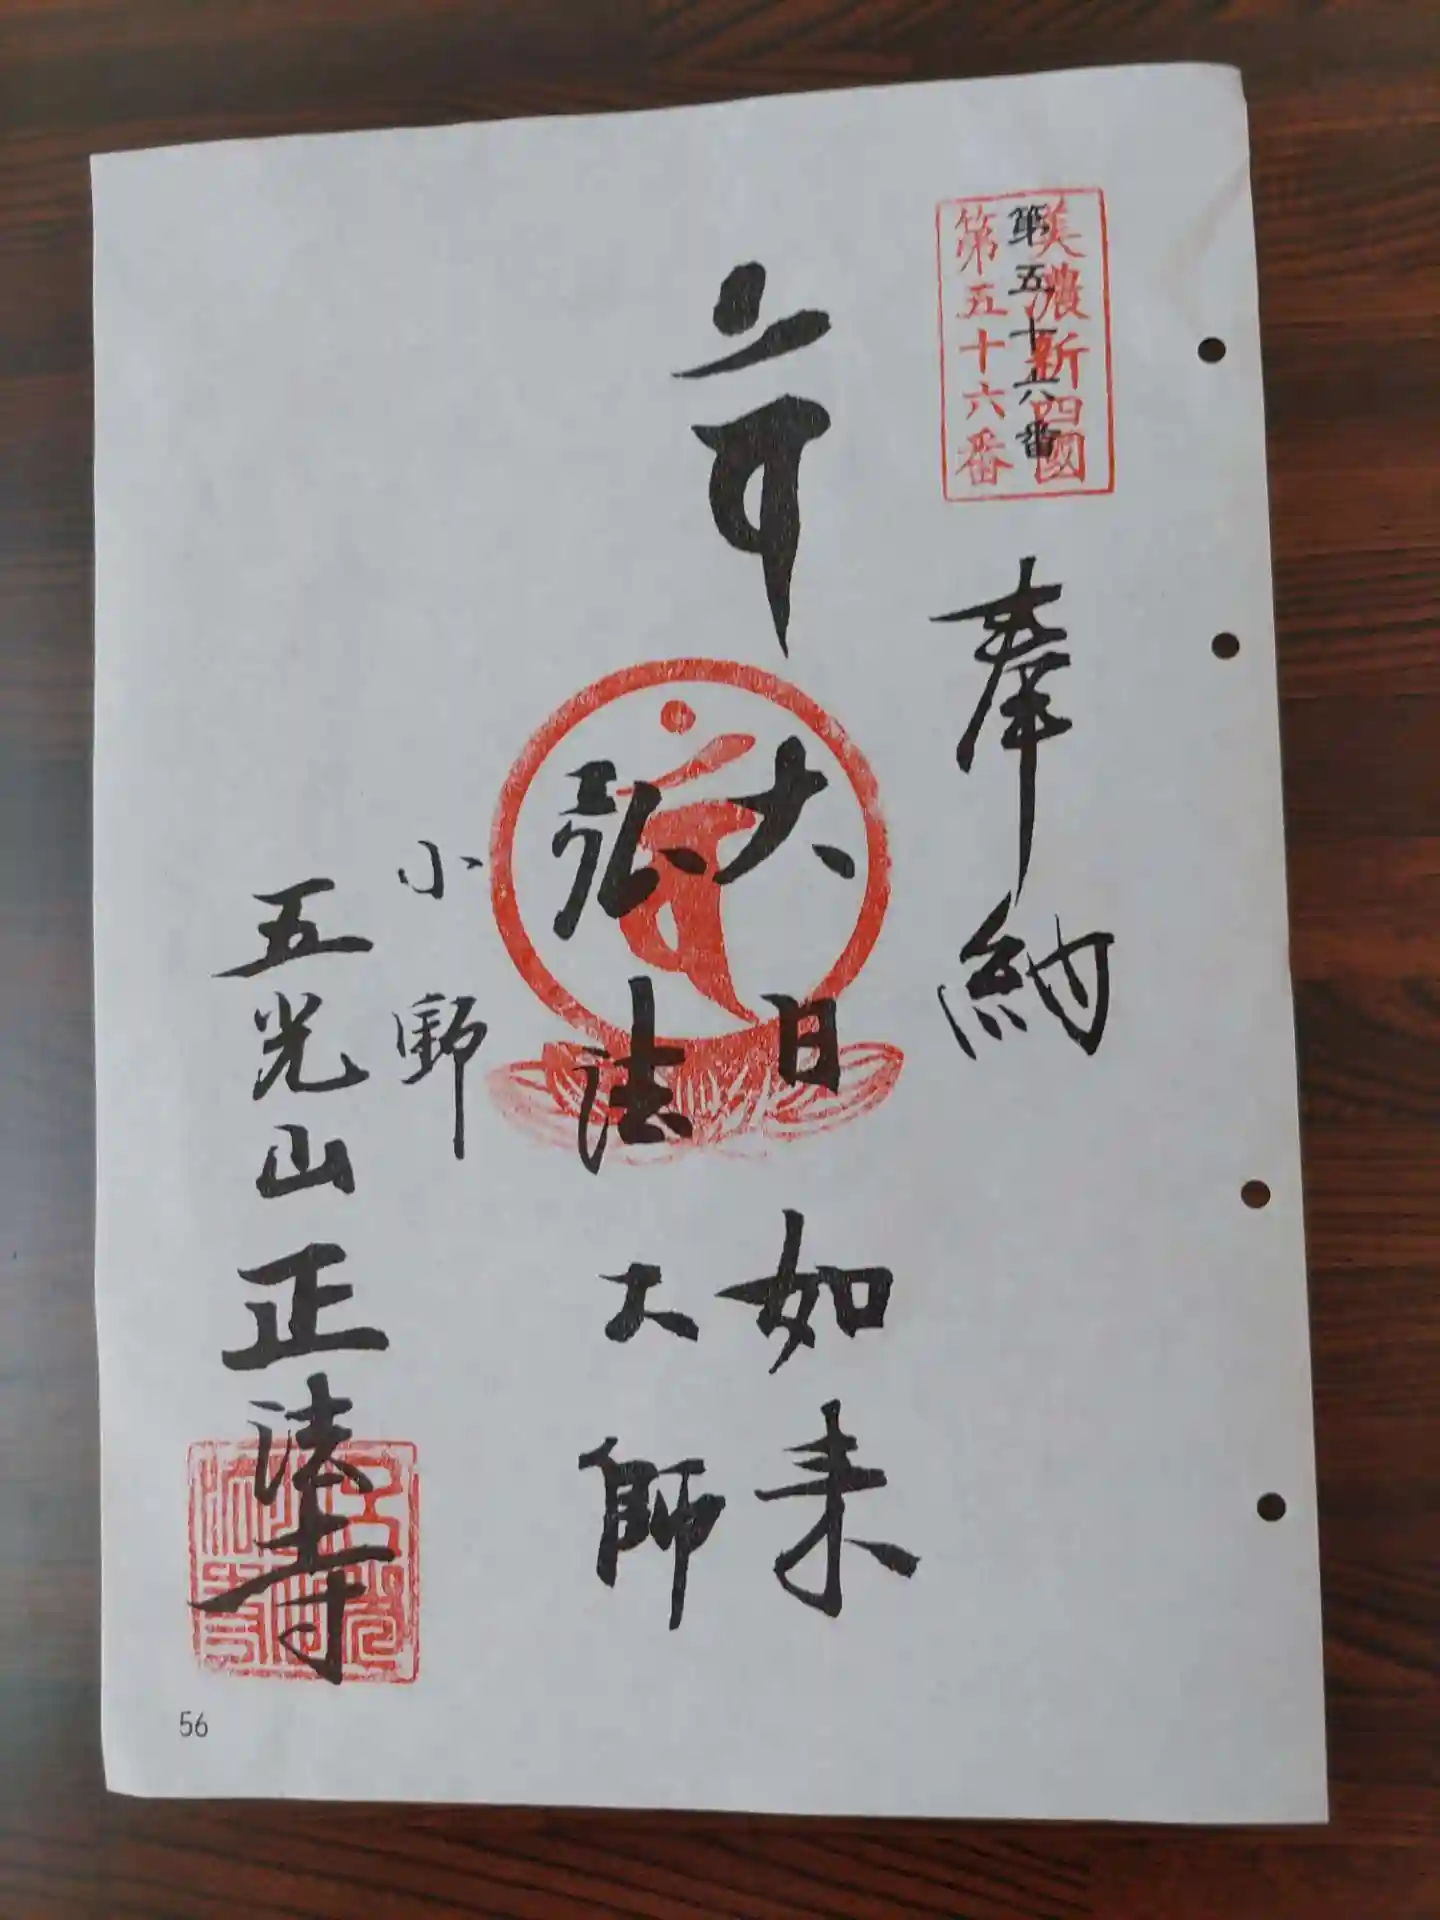 美濃新四國
第五十六番
第五十六番
奉納
大日如来
弘法大師
小野
五光山正法寺
56